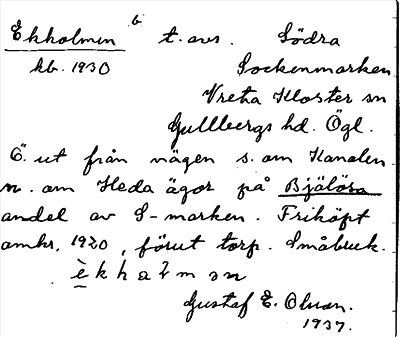 Ekholmen 6 t. avs. Södra
kb. 1930 Sockenmarken
Vreta Kloster sn
Gullbergs hd. Ögl.
Ö. ut från vägen s. om Kanalen
n. om Heda ägor på Bjälösa
andel av S-marken. Friköpt
omkr. 1920, förut torp. Småbruk.
èkhalmən
Gustaf E. Olsson.
1937.